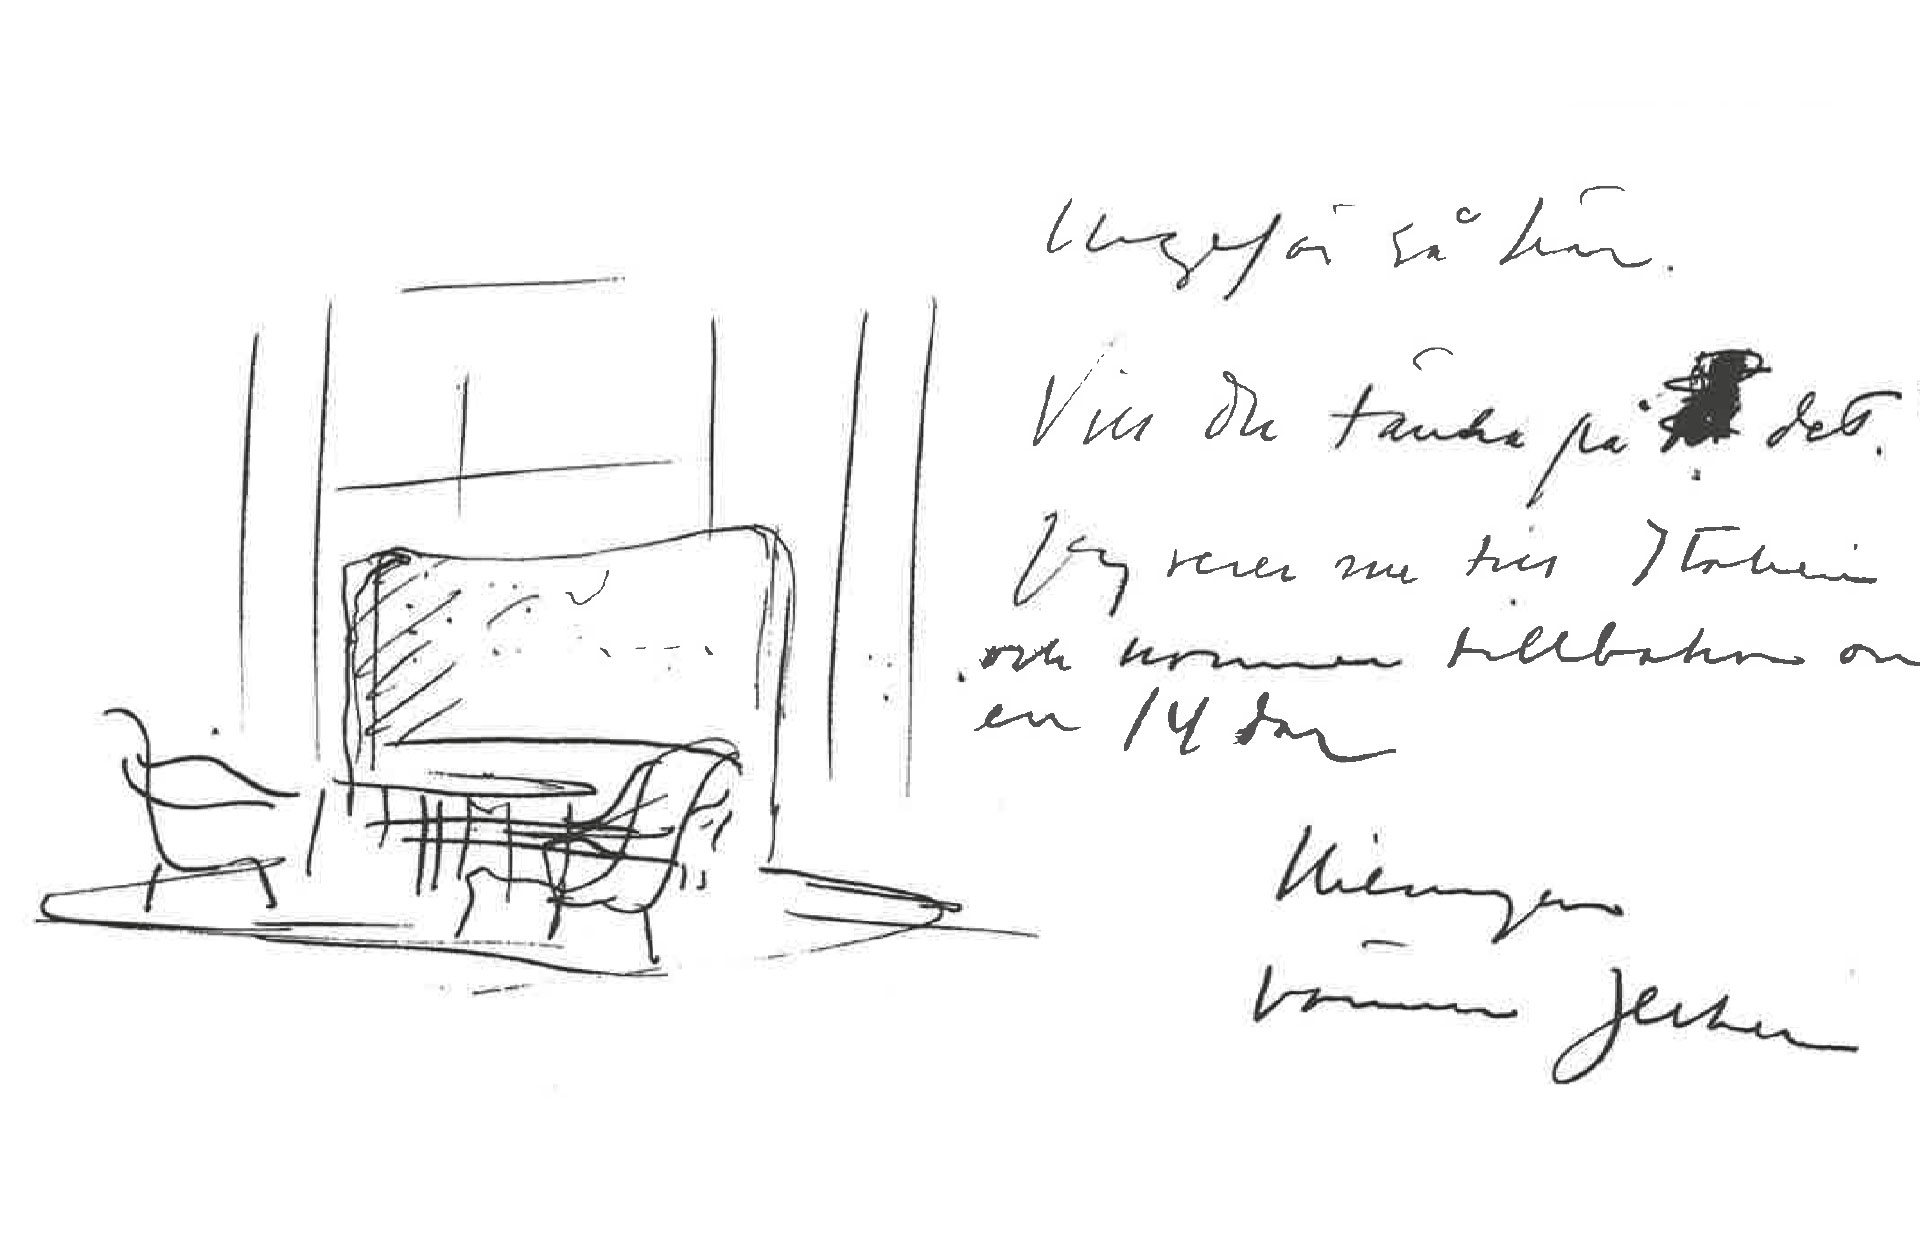 Ungefär så här.
Vill du tänka på det.
Jag reser nu till Italien
och kommer tillbaka om
en 14 dar
Hälsningar
vännen